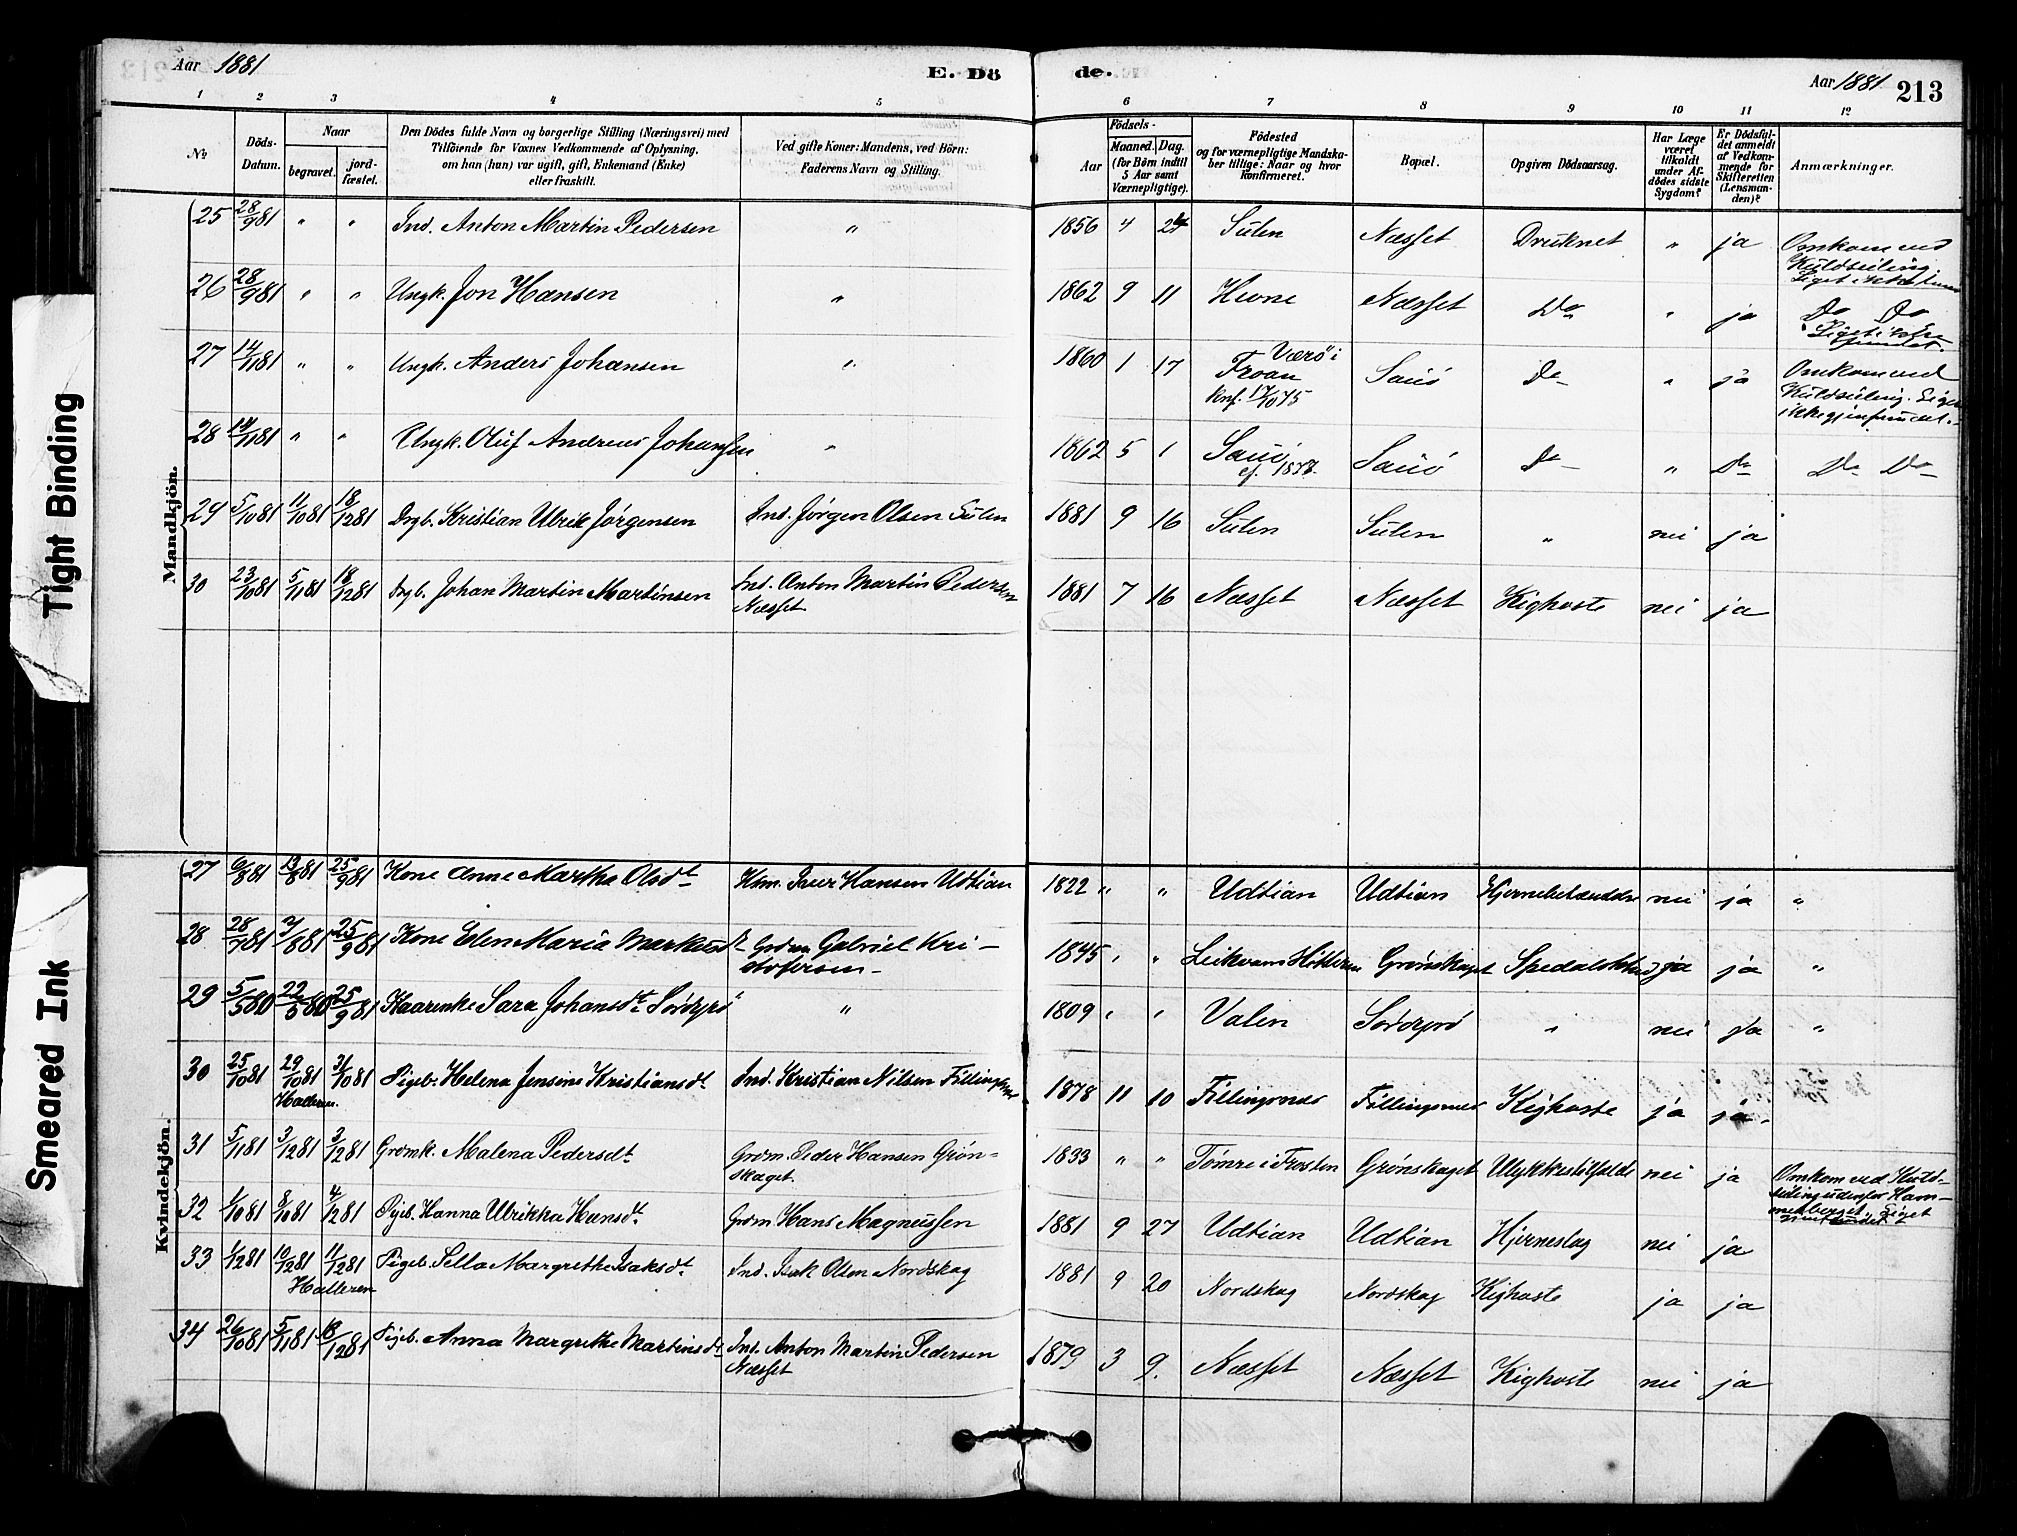 Tight Binding
Smeared Ink
Aar 1881
E. Dö
de.
Aar 1881 213
1 2 3 4 5 6 7 8 9 10 11 12
No
Döds-Datum.
Naar
begravet.
jord-fæstet.
Den Dödes fulde Navn og borgerlige Stilling (Næringsvei) med
Tilföiende for Voxnes Vedkommende af Oplysning,
om han (hun) var ugift, gift, Enkemand (Enke)
eller fraskilt.
Ved gifte Koner: Mandens, ved Börn:
Faderens Navn og Stilling.
Födsels-
Aar
Maaned. Dag.
(for Börn indtil
5 Aar samt
Værnepligtige).
Födested
og for værnepligtige Mandska-
ber tillige: Naar og hvor
konfirmeret.
Bopæl.
Opgiven Dödsaarsag.
Har Læge
været
tilkaldt
under Af-
dödes sidste
Sygdom?
Er Dödsfal-
det anmeldt
af Vedkom-
mende for
Skifteretten
(Lensman-
den)?
Anmærkninger.
Mandkjön.
25 28/9 81 " " Ind. Anton Martin Pedersen " 1856 4 24 Sulen Næsset Druknet " ja Omkom ved
Kuldseiling.
26 28/9 81 " " Ungk. Jon Hansen " 1862 9 11 Hevne Næsset Do " ja Do Do
27 14/11 81 " " Ungk. Anders Johansen " 1860 1 17 Værö i
Froan
Knf. 17/10 75 Sauö Do " ja Omkom ved
Kuldseiling. Liget
ikke gjenfundet.
28 14/11 81 " " Ungk. Oluf Andreas Johansen " 1862 5 1 Sauö
cf. 1878 Sauö Do " Do Do Do
29 5/10 81 11/10 81 18/12 81 Drgb. Kristian Ulrik Jørgensen Ind. Jørgen Olsen Sulen 1881 9 16 Sulen Sulen " nei ja
30 23/10 81 5/11 81 18/12 81 Drgb. Johan Martin Martinsen Ind. Anton Martin Pedersen
Næsset 1881 7 16 Næsset Næsset Kighoste nei ja
Kvindekjön.
27 6/8 81 13/8 81 25/9 81 Kone Anne Martha Olsdt Iver Hansen Udtian 1822 " " Udtian Udtian nei ja "
28 28/7 81 3/8 81 25/9 81 Kone Elen Maria Markusdt Grdm Gabriel Kri-
stofersen 1845 " " Grønskaget ja ja "
29 5/5 80 22/5 80 25/9 81 Sara Johansdt " 1809 " " Valen " nei ja "
30 25/10 81 29/10 81
Halleren. 31/10 81 Pigeb. Helena Jensine Kristiansdt Ind. Kristian Nilsen Fillingsnes 1878 11 10 Fillingsnes Fillingsnes Kighoste ja ja
31 5/11 81 3/12 81 3/12 81 Grdmk. Malena Pedersdt Grdm. Peder Hansen Grøn-
skaget. 1833 " " Tømre i Frosten Grønskaget Ulykkestilfælde nei ja Omkom ved Kuld-
seiling udenfor Ham-
32 1/10 81 8/10 81 4/12 81 Pigeb. Hanna Ulrikka Hansdt. Grdm Hans Magnussen 1881 9 27 Udtian Udtian Hjerneslag nei ja
33 1/12 81 10/12 81
Halleren 11/12 81 Pigeb. Sella Margrethe Isaksdt. Ind. Isak Olsen Nordskag 1881 9 20 Nordskag Nordskag Kighoste ja ja
34 26/10 81 5/11 81 18/12 81 Pigeb. Anna Margrethe Martinsdt Ind. Anton Martin Pedersen
Næsset 1879 3 9. Næsset Næsset Kighoste nei ja